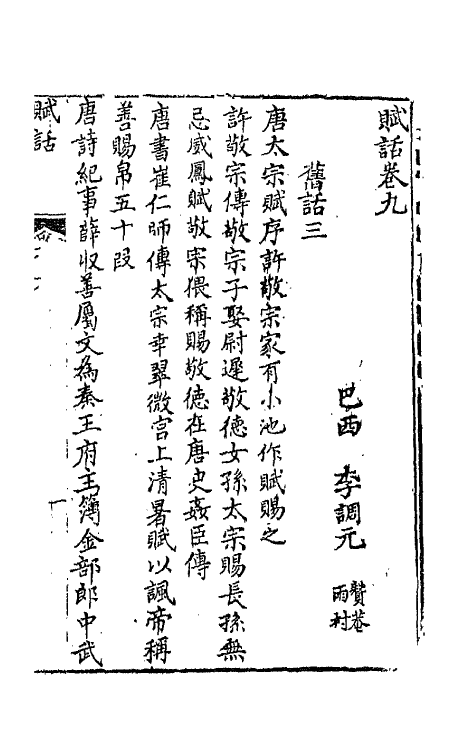 賦話卷九
巴西 李調元 贊菴 雨村
舊話三
唐太宗賦序許敬宗家有小池作賦賜之
許敬宗傳敬宗子娶尉遲敬德女孫太宗賜長孫無
忌威鳳賦敬宗猥稱賜敬德在唐史姦臣傳
唐書崔仁師傳太宗幸翠微宫上清暑賦以諷帝稱
善賜帛五十段
唐詩紀事薛收善屬文為秦王府主簿金部郎中武
賦話